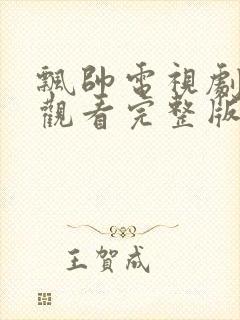 飄帥電視劇
觀看完整版
王賀成